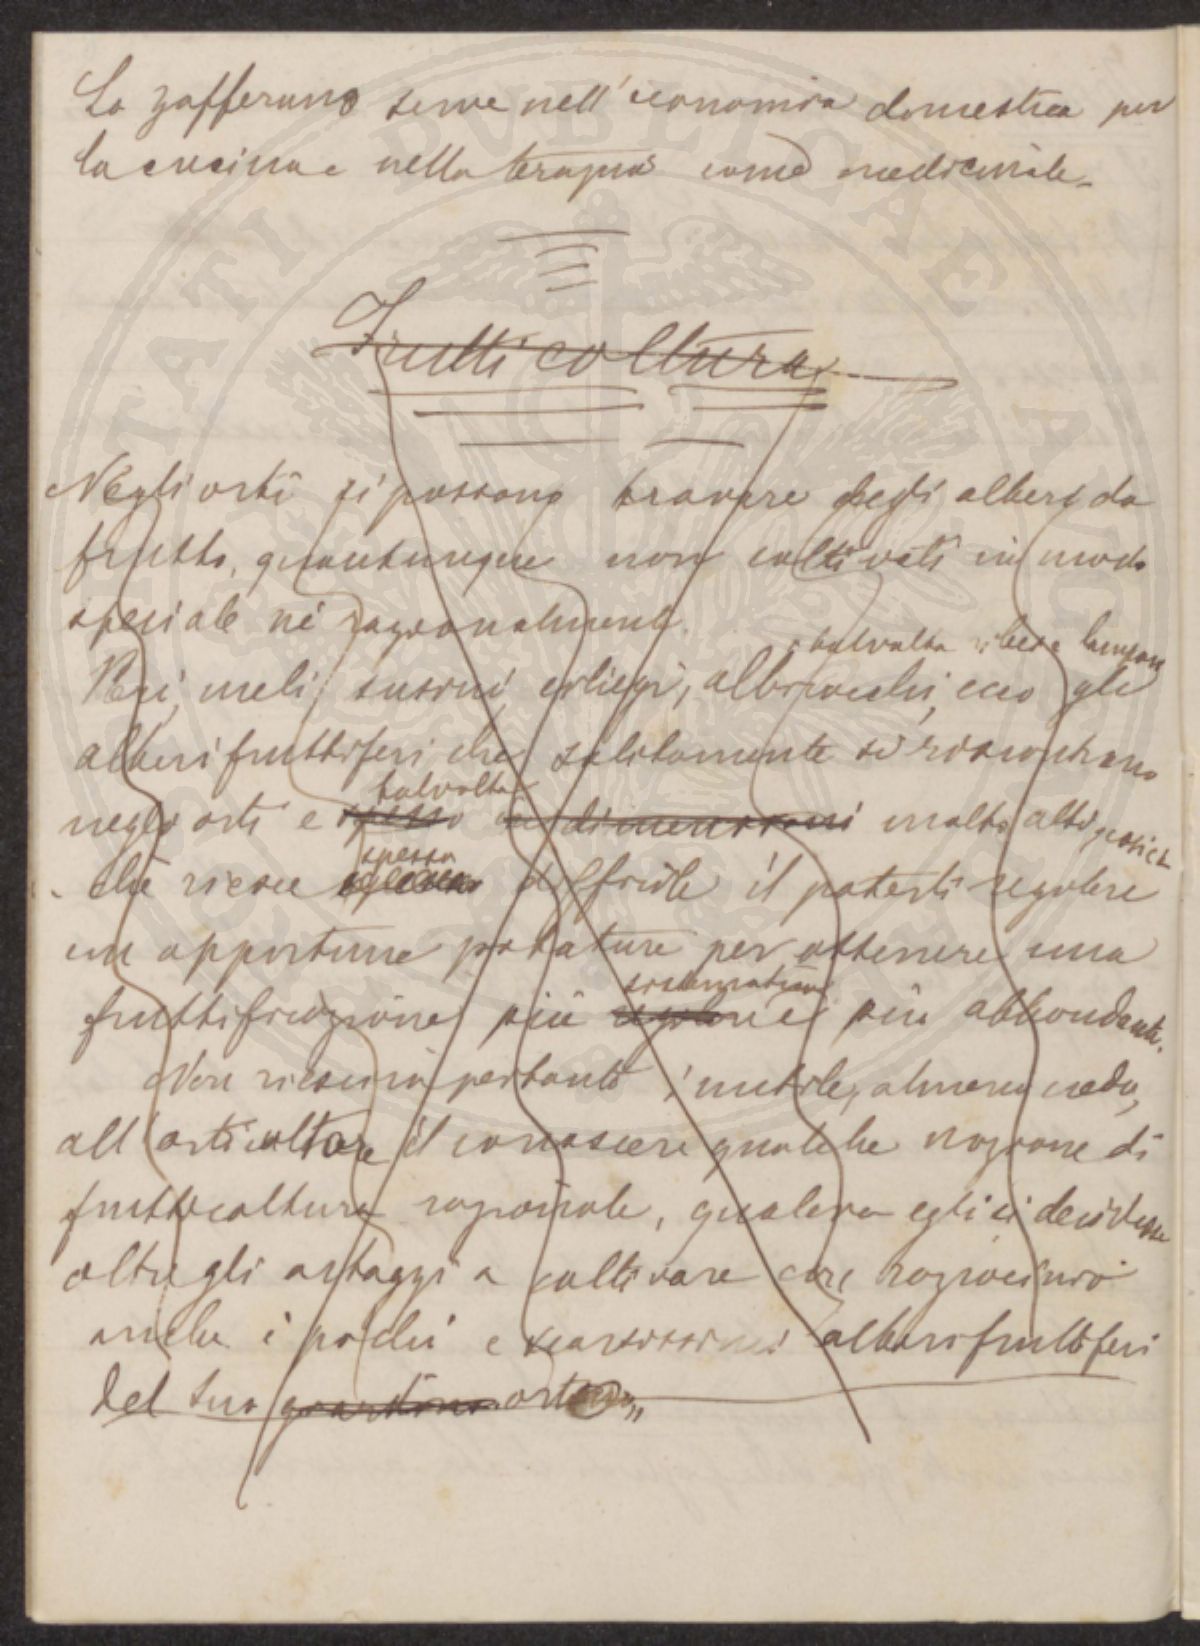 Lo zafferano serve nell'economia domestica per
la cucina e nella terapia come medicinale.
Frutticoltura
Negli orti si possono trovare degli alberi da
frutto, quantunque non coltivati in modo
speciale nè razionalmente.
talvolta ribes e lamponi
Peri, meli, susini, ciliegi, albicocchi, ecco gli
alberi fruttiferi che solitamente si riscontrano
talvolta
negli orti e spesso di dimensioni molto alti, cosicchè
spesso
che riesce difficile il poterli regolare
con opportune potature per ottenere una
sistematica
fruttificazione più regolare e più abbondante.
Non riescirà pertanto inutile, almeno credo,
all'orticoltore il conoscere qualche nozione di
frutticoltura razionale, qualora egli si decidesse
oltre gli ortaggi a coltivare con raziocinio
anche i pochi e scarsissimi alberi fruttiferi
del suo giardino orto